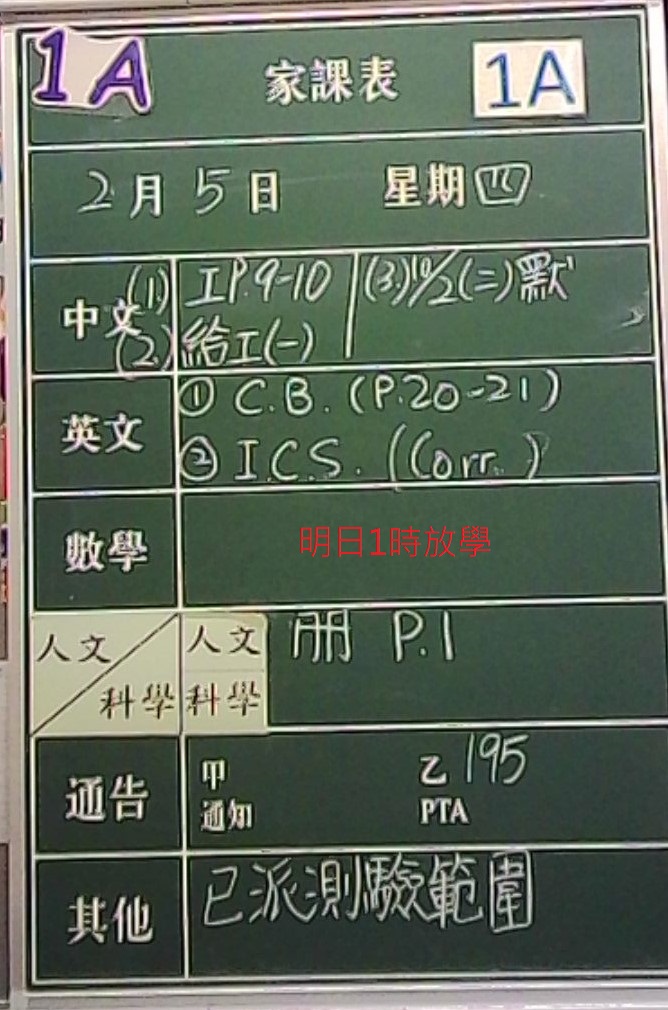 1A 家課表 1A
2月5日 星期四
中文 (1.) 工P.9-10 (3.) 10/2(二)默1
(2.) 給工(一)
英文 ① C.B. (P.20-21)
② I.C.S. (Corr.)
數學 明日1時放學
人文 科學 人文 科學 冊 P.1
通告 甲 乙 195
通知 PTA
其他 已派測驗範圍